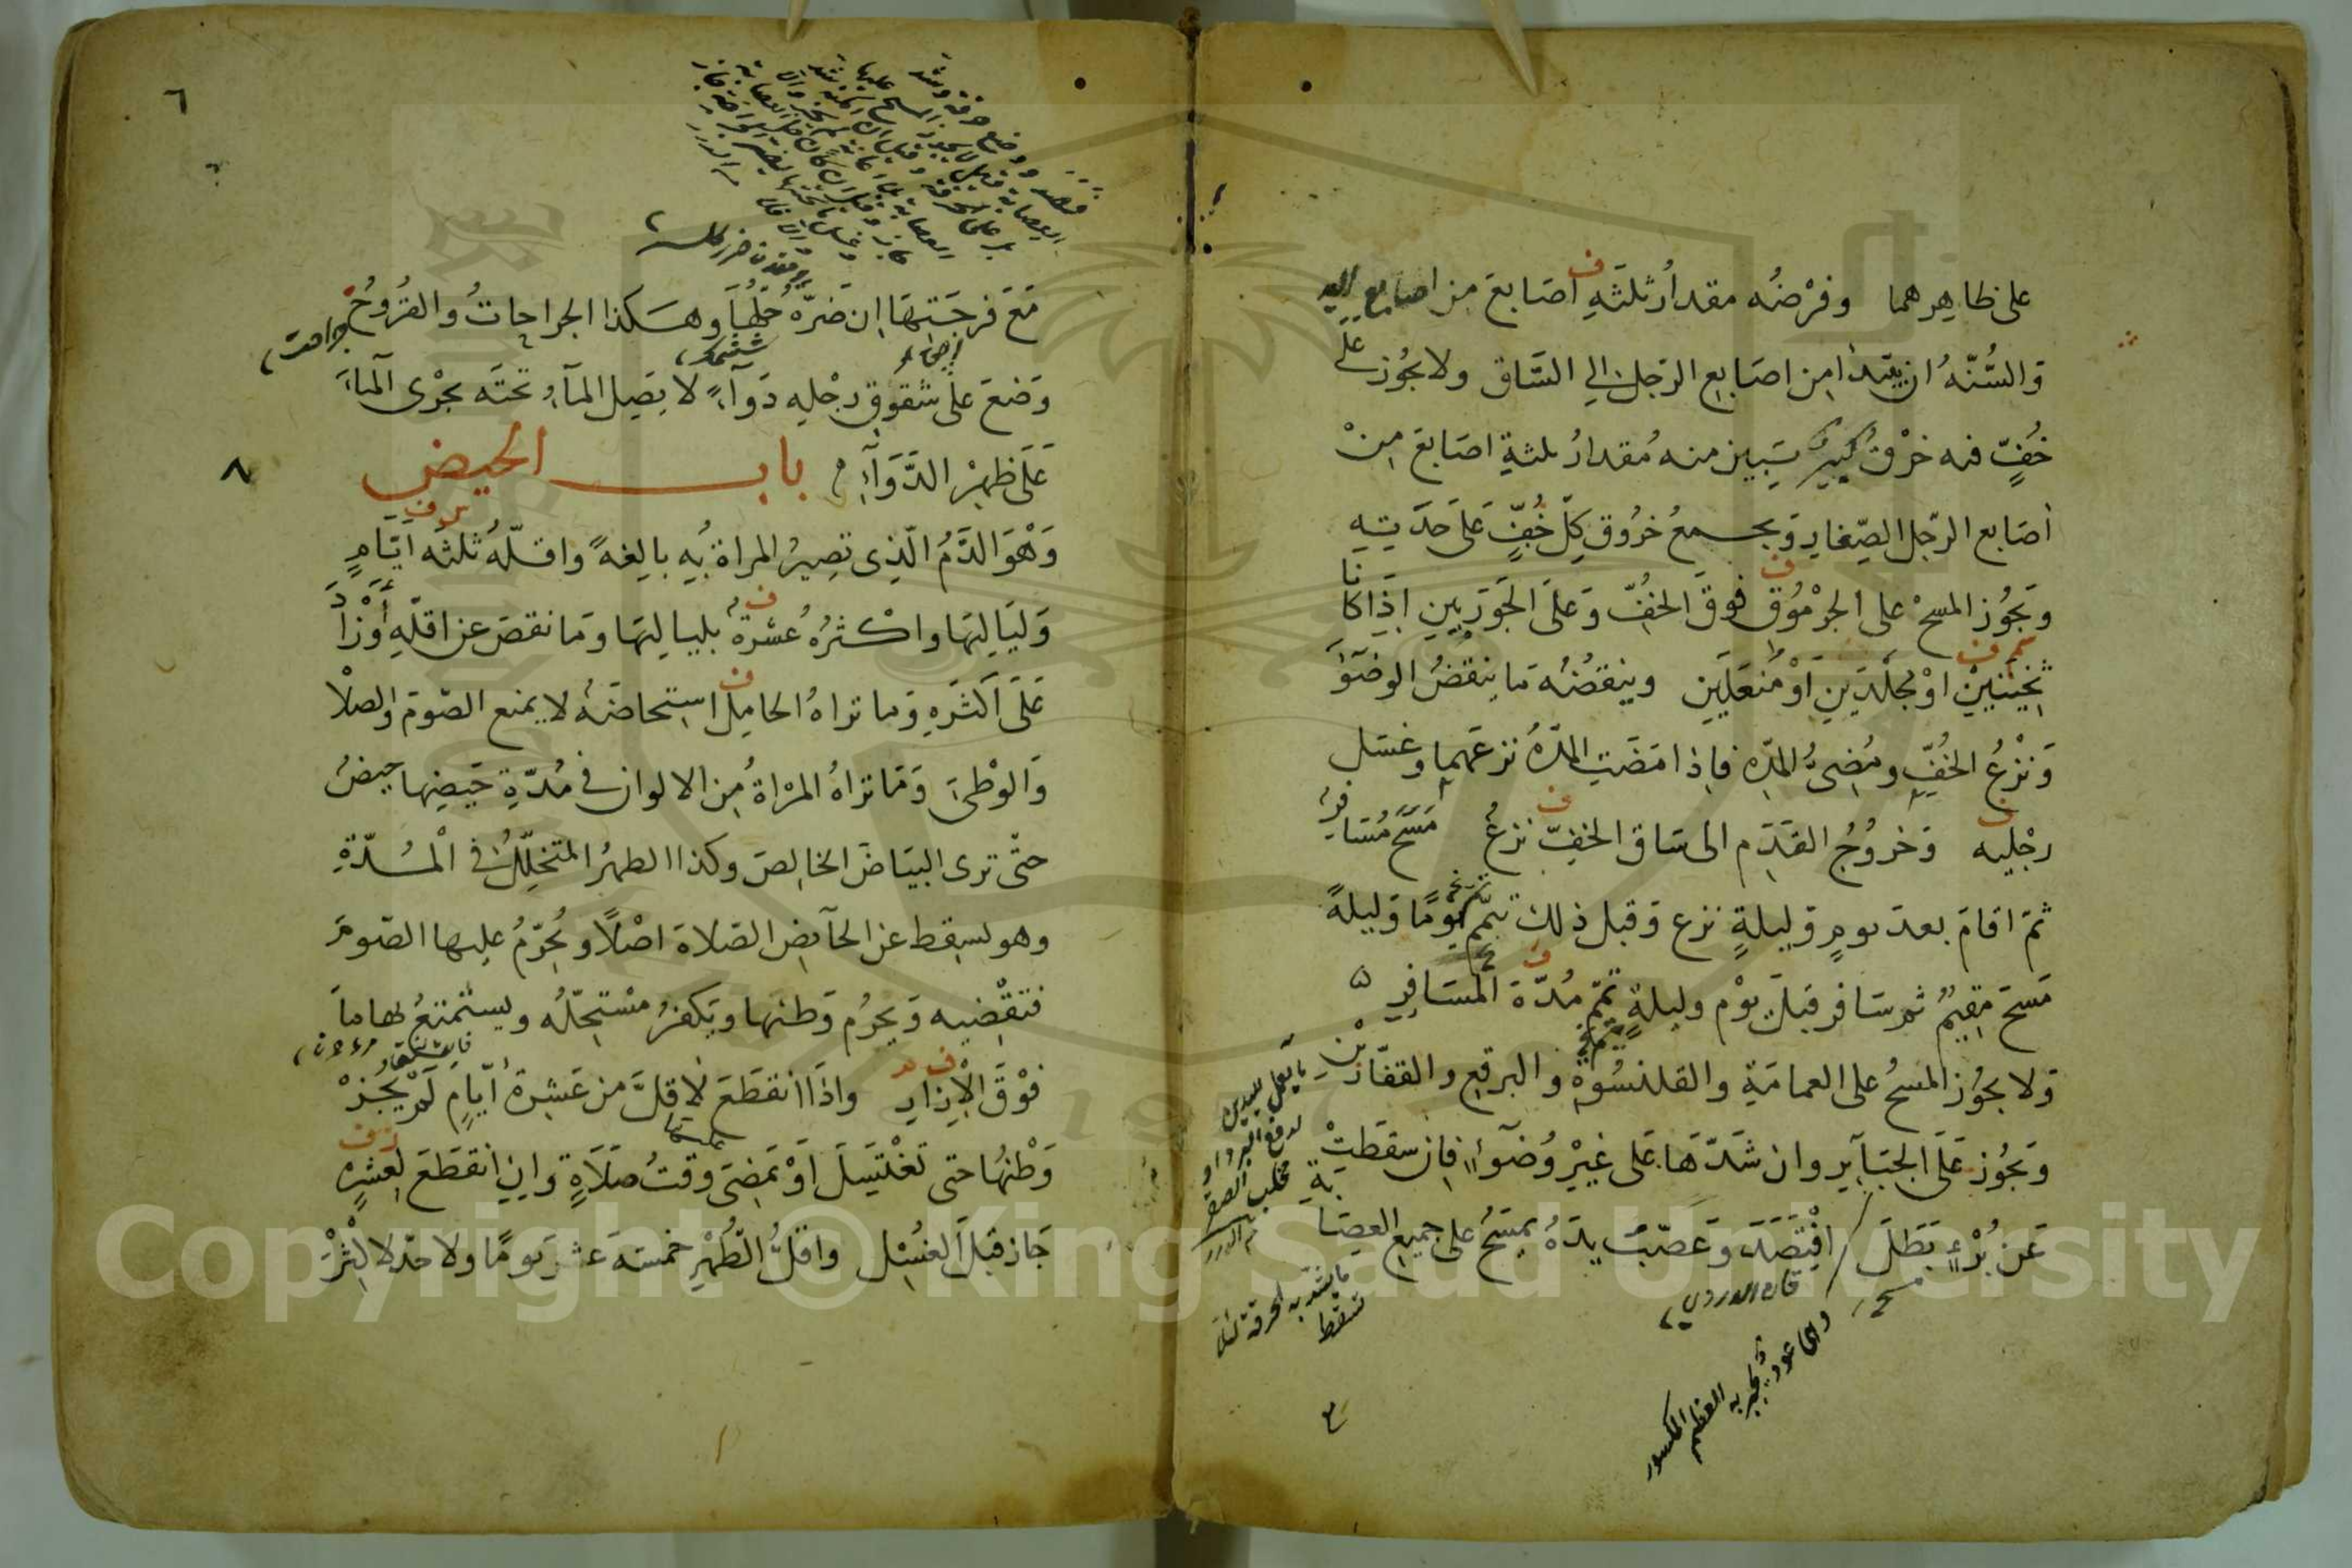 على ظاهرهما وفرْضُه مقدارُ ثلثَهِ اصَابعَ مِن اصابع اليد
وَالسُّنّهُ ان يبتدا مِن اصَابِعِ الرّجل الي السَّاق ولا يجُوز علي
خُفٍّ فيه خرْقٌ كبيرٌ يَبين منه مُقدارُ ثلثةِ اصَابعَ مِنْ
اصَابع الرّجل الصِّغارِ وَيجمعُ خرُوق كِلّ خُفٍّ عَلى حدَيتِهِ
ويَجُوز المسحْ على الجرْمُوُق فوقَ الخفُّ وَعلىَ الجَورَبينِ اِذَا كانا
ثخِينَيْنِ اوْ مجلّدَينِ اَوْ مُنَعَلَيَنِ وينقضُه مَا ينْقضُ الوضوءَ
وَنزْعُ الخُفِّ ومُضِىُّ المدّه فاِذا مَضَتِ المدّهُ نزعَهما وغسَل
رجْليه وَخرُوُجُ القَدَم الى سَاق الخفِّ نزعٌ مَسَحَ مُسَافرٌ
ثمّ اقامَ بعدَ يومٍ وَليلةٍ نزع وَقبل ذلك تمّم يَوْمًا وَليلةً
مَسحَ مقيمٌ ثم سَافر قبَل يوْم وليلةٍ تمّم مُدّةَ المُسَافِرِ
وَلا يجوُز المسحُ على العمامَةِ والقلنسُوَةِ والبرقعِ والقفّازيْنِ
وَيَجُوز عَلَى الجبَآيِر وان شَدّهَا عَلى غيْرِ وُضوءٍ فاِن سقطَتْ
عَن بُرْءٍ بَطَلَ افتَصَدَ وَعَصّبَ يدَهُ يمسَحُ على جميع العصَابَةِ
قاله الدردي
وهى عود يُجبر به العظم المكسور
ما يشدّ به الخرقة لئلا
تسقط
٦
مَعَ فرجَتهَا اِن ضَرّهُ حلّهَا وهكذا الجراحاتُ والقرُوحُ
وَضعَ علَى شقوقِ رجْلِه دَوَآءً لا يصَيِل المآءُ تحتَه يجْرى المآءَ
عَلَى ظهْرِ الدَّوَآءِ بابـــ الحيض
٨
وَهْوَ الدَّمُ الّذِى تصِيرُ المراةُ بِه بالِغهً واقلّهُ ثلثهُ ايّامٍ
وَليَالِيَها واكثرُهُ عَشرَةٌ بليالِيَها ومَا نقصَ عن اقلّهِ أوْزاد
عَلىَ اكثرِه وَما تراهُ الحامِل استحاضَهُ لا يمنع الصّومَ والصلاة
وَالوْطىَ وَمَا تراهُ المرْاةُ مِن الالوان فى مُدّةِ حَيضِها حيضٌ
حتّى ترى البيَاضَ الخالِصَ وكذا الطهرُ المتخلّلُ فى المُدّةِ
وهو يسقط عن الحآيض الصّلاةَ اصْلاً ويُحرّمُ عليها الصّومَ
فتقْضيه وَيحرُم وَطئها ويَكفرُ مسْتحِلّهُ ويستمْتعُ بها ما
فوْقَ الاِزارِ واذَا انقطَعَ لاقلَّ مِن عَشرةِ ايّامٍ لَم يَجُزْ
وَطْئهُا حتى تغْتَسِلَ اَوْ يمَضِىَ وقتُ صَلَاةٍ واِن انقطَعَ لِعَشرِةٍ
جَاز قبَل الغُسْل واقلُّ الطُهْرِ خمسَةَ عشرَ يومًا ولا حدّ لاكثرِه
Copyright © King Saud University